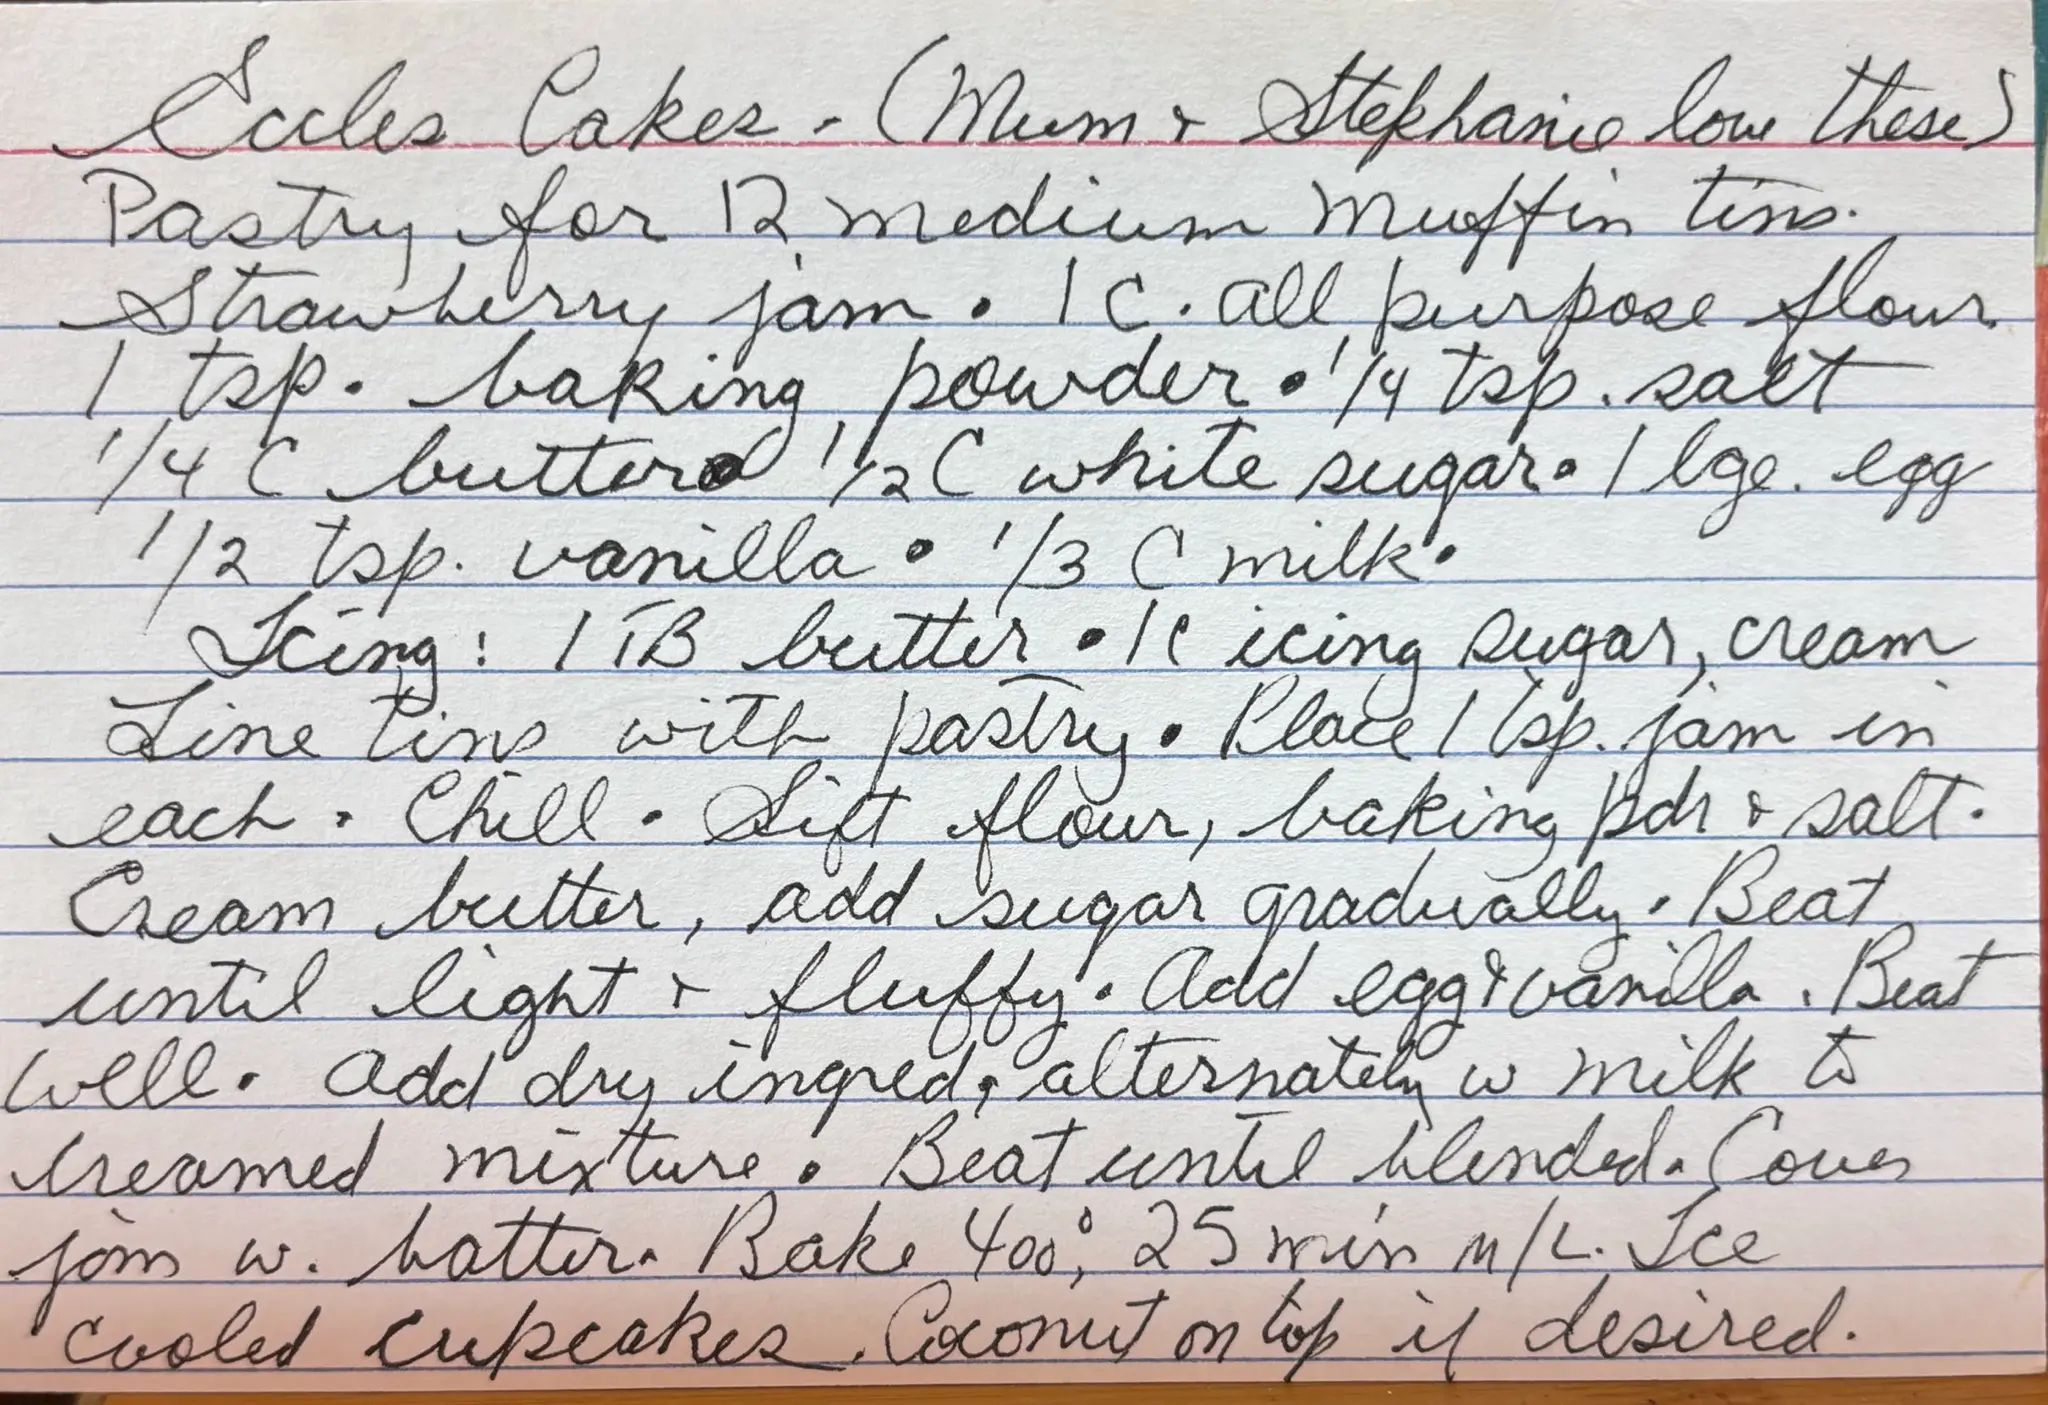 Eccles Cakes - (Mum + Stephanie love these)
Pastry for 12 medium muffin tins.
Strawberry jam • 1 C. all purpose flour
1 tsp. baking powder • 1/4 tsp. salt
1/4 C butter • 1/2 C white sugar • 1 lge. egg
1/2 tsp. vanilla • 1/3 C milk •
Icing: 1 TB butter • 1 C icing sugar, cream
Line tins with pastry. Place 1 tsp. jam in
each. Chill. Sift flour, baking pdr + salt.
Cream butter, add sugar gradually. Beat
until light + fluffy. Add egg + vanilla. Beat
well. Add dry ingred, alternately w milk to
creamed mixture. Beat until blended. Cover
jam w. batter. Bake 400°, 25 min M/L. Ice
cooled cupcakes. Coconut on top if desired.